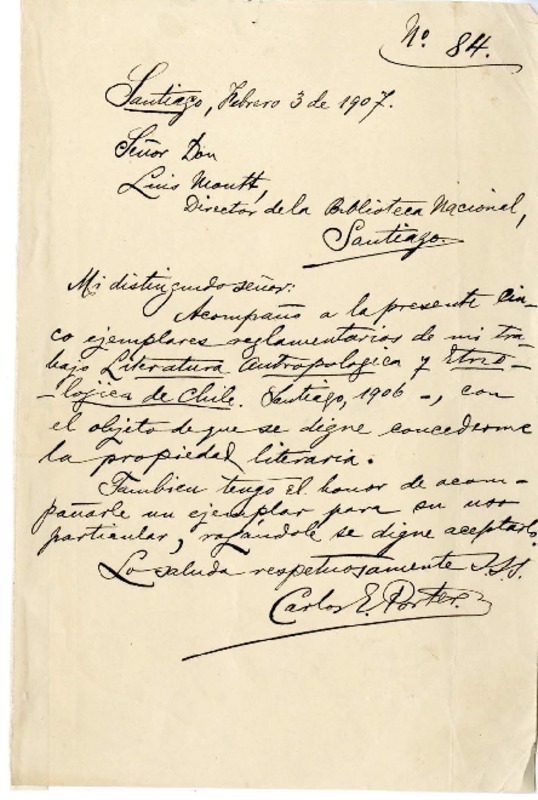 No. 84.
Santiago, Febrero 3 de 1907.
Señor Don
Luis Montt,
Director de la Biblioteca Nacional,
Santiago.
Mi distinguido señor:
Acompaño a la presente cin-
co ejemplares reglamentarios de mi tra-
bajo Literatura Antropologica y Etno-
-lojica de Chile. Santiago, 1906 -, con
el objeto de que se digne concederme
la propiedad literaria.
Tambien tengo el honor de acom-
pañarle un ejemplar para su uso
particular, rogándole se digne aceptarlo.
Lo saluda respetuosamente S.S.S.
Carlos E. Porter.